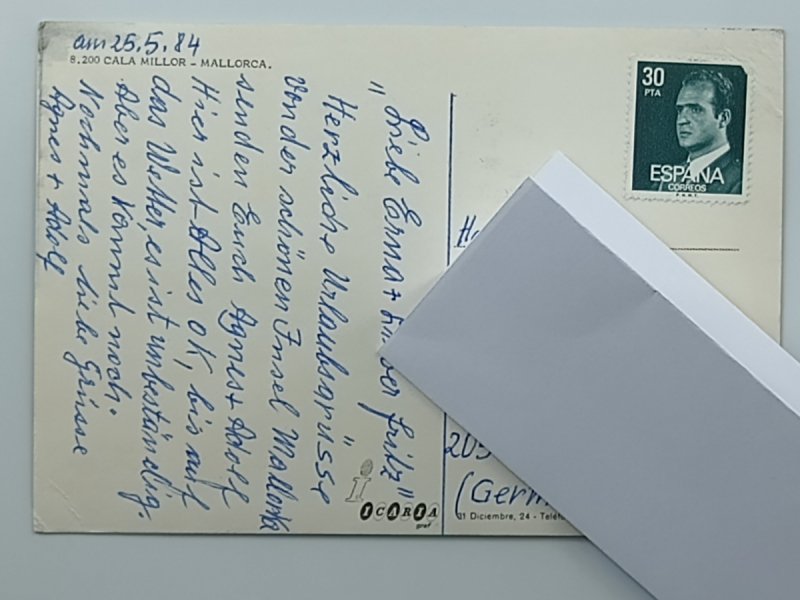 am 25.5.84
8.200 CALA MILLOR - MALLORCA.
"Liebe Erna + Fritz"
Herzliche Urlaubsgrüsse
Von der schönen Insel Mallorka
senden Euch Agnes + Adolf
Hier ist Alles OK, bis auf
das Wetter, es ist unbeständig.
Aber es kommt noch.
Nochmals liebe Grüsse
Agnes + Adolf
30
PTA
ESPAÑA
CORREOS
F.N.M.T.
205
(Germ
ICARIA
graf
31 Diciembre, 24 - Telé